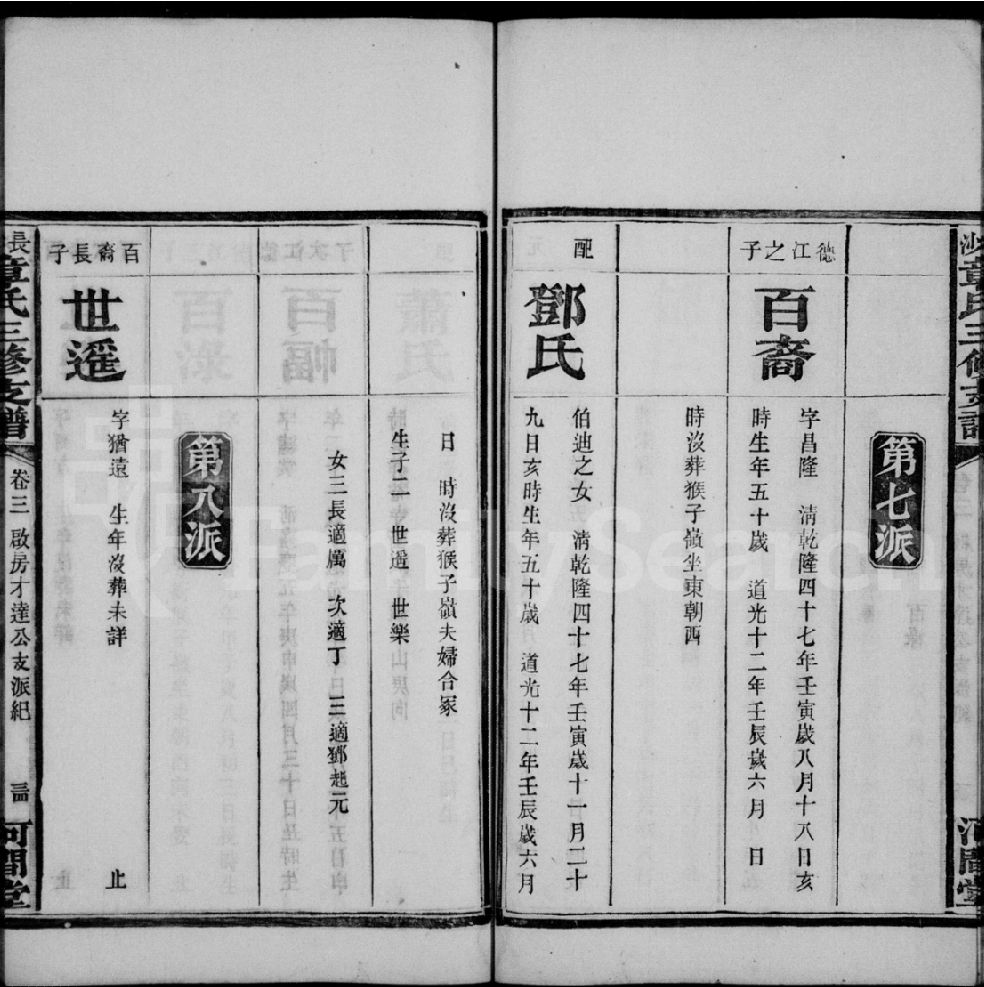 章氏三修支譜
河間堂
第七派
德江之子
百裔
字昌隆 清乾隆四十七年壬寅歲八月十八日亥
時生年五十歲 道光十二年壬辰歲六月 日
時沒葬猴子嶺坐東朝西
配
鄧氏
伯迪之女 清乾隆四十七年壬寅歲十一月二十
九日亥時生年五十歲 道光十二年壬辰歲六月
日 時沒葬猴子嶺夫婦合冢
生子二 世遥 世樂
女三長適厲 次適丁 三適鄧起元
第八派
百裔長子
世遥
字猶遠 生年沒葬未詳 止
長章氏三修支譜
卷三 啟房才達公支派紀
河間堂
FamilySearch